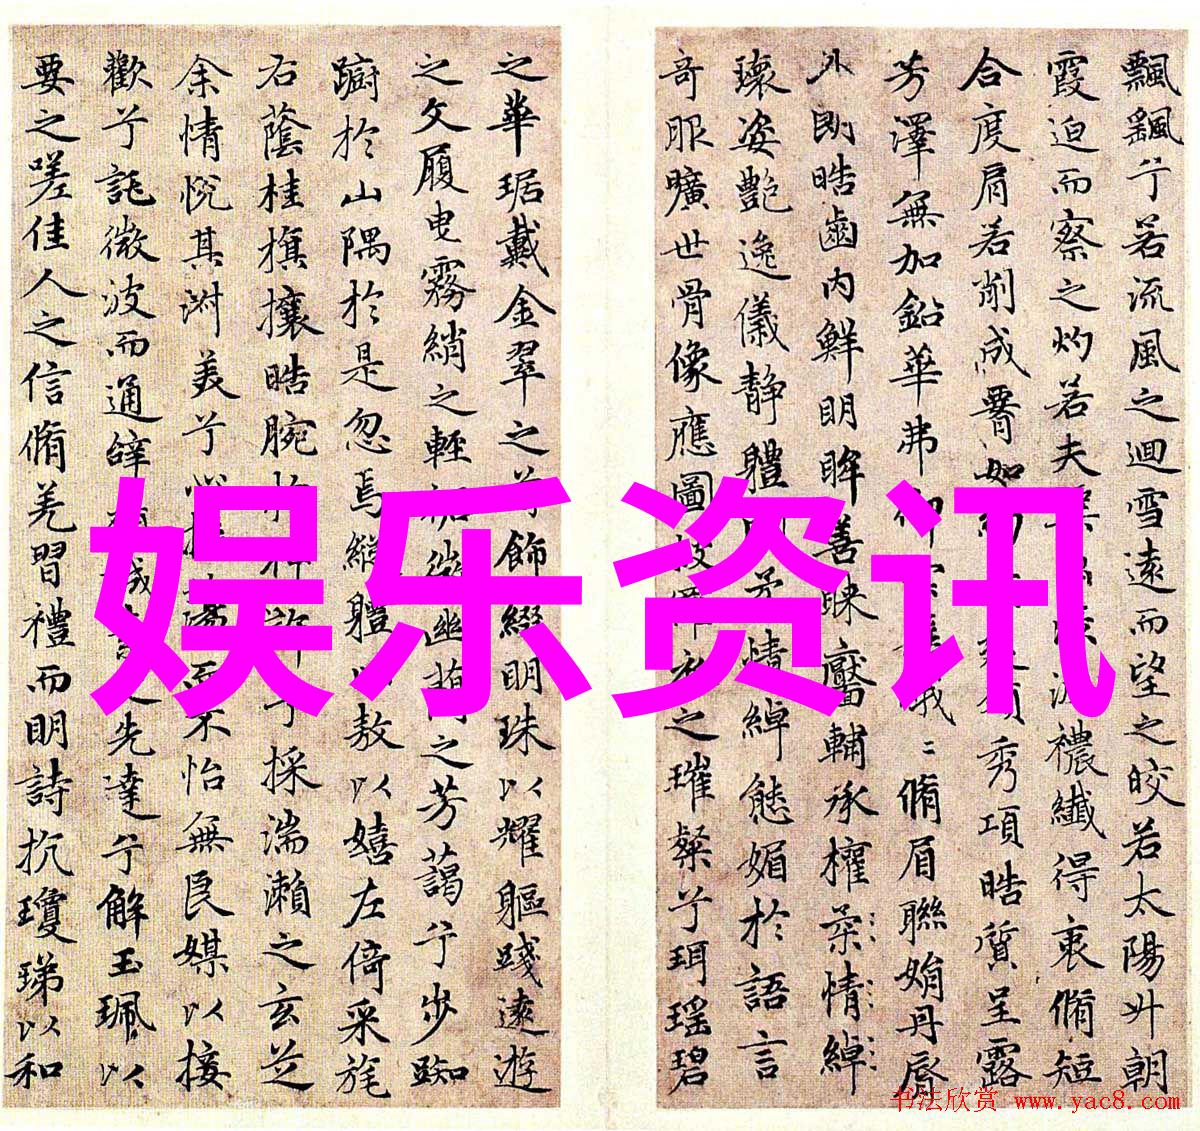 飄飖兮若流風之迴雪遠而望之皎若太陽升朝
霞迫而察之灼若夫波襛纖得衷脩短
合度肩若削成署如約秀項皓質呈露
芳澤無加鉛華弗御脩眉聯娟丹脣
外朗皓齒內鮮明眸善睞靨輔承權柔情綽
瓌姿艷逸儀静體情綽態媚於語言
奇服曠世骨像應圖衣之璀粲兮珥瑤碧
之華琚戴金翠之首飾綴明珠以耀軀踐遠遊
之文履曳霧綃之輕裾微幽之芳藹兮步踟
躕於山隅於是忽焉縱體以敖以嬉左倚采旄
右蔭桂旗攘皓腕於兮採湍瀨之玄芝
余情悅其淑美兮心而不怡無良媒以接
歡兮託微波而通辭誠之先達兮解玉珮以
要之嗟佳人之信脩羌習禮而明詩抗瓊珶以和
娱乐资讯
书法欣赏 www.yac8.com